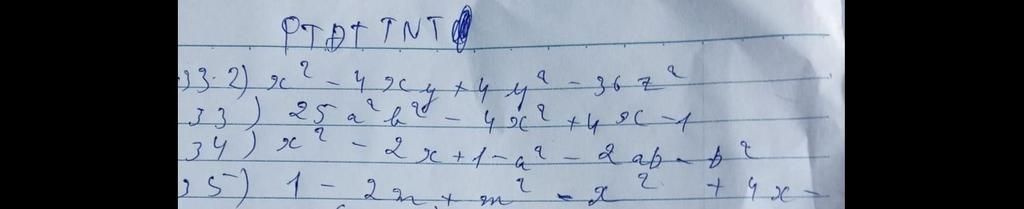 PTĐT TNT
33.2) x² - 4xy + 4y² - 36z²
33) 25a²b² - 4x² + 4x - 1
34) x² - 2x + 1 - a² - 2ab - b²
35) 1 - 2m + m² - x² + 4x -